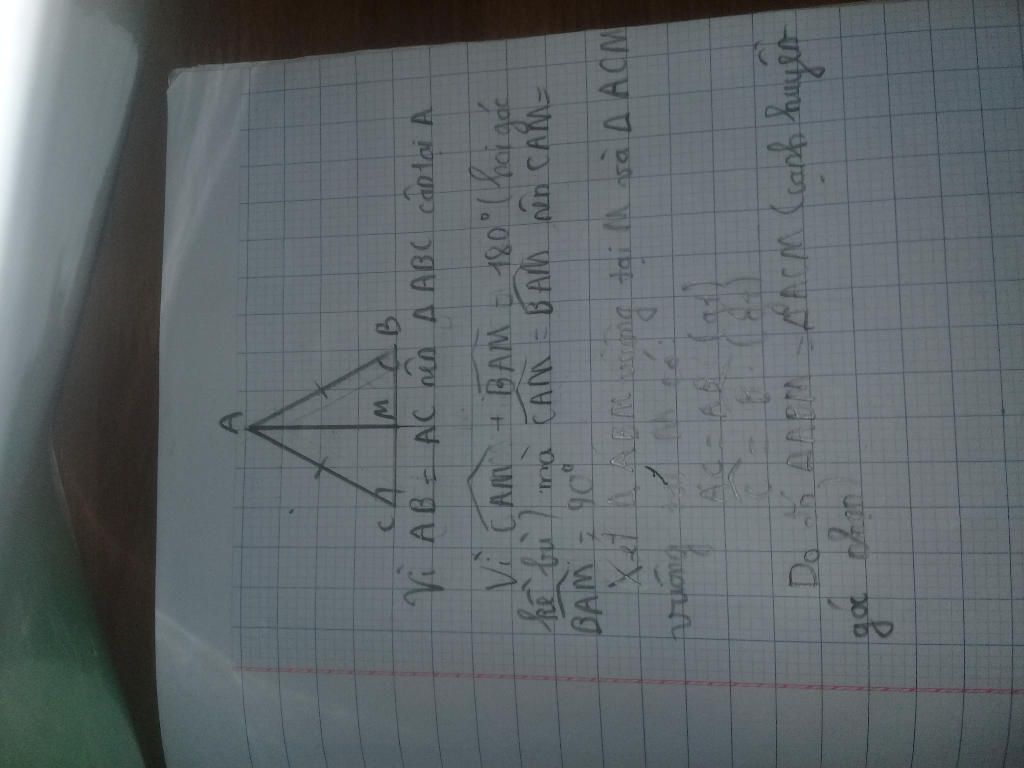 A
C M B
Vì AB = AC nên Δ ABC cân tại A
Vì CAM + BAM = 180° (hai góc
kề bù) mà CAM = BAM nên CAM =
BAM = 90°
Xét Δ ABM vuông tại M và Δ ACM
vuông tại M có
AC = AB (gt)
C = B (gt)
Do đó ΔABM = ΔACM (cạnh huyền
góc nhọn)